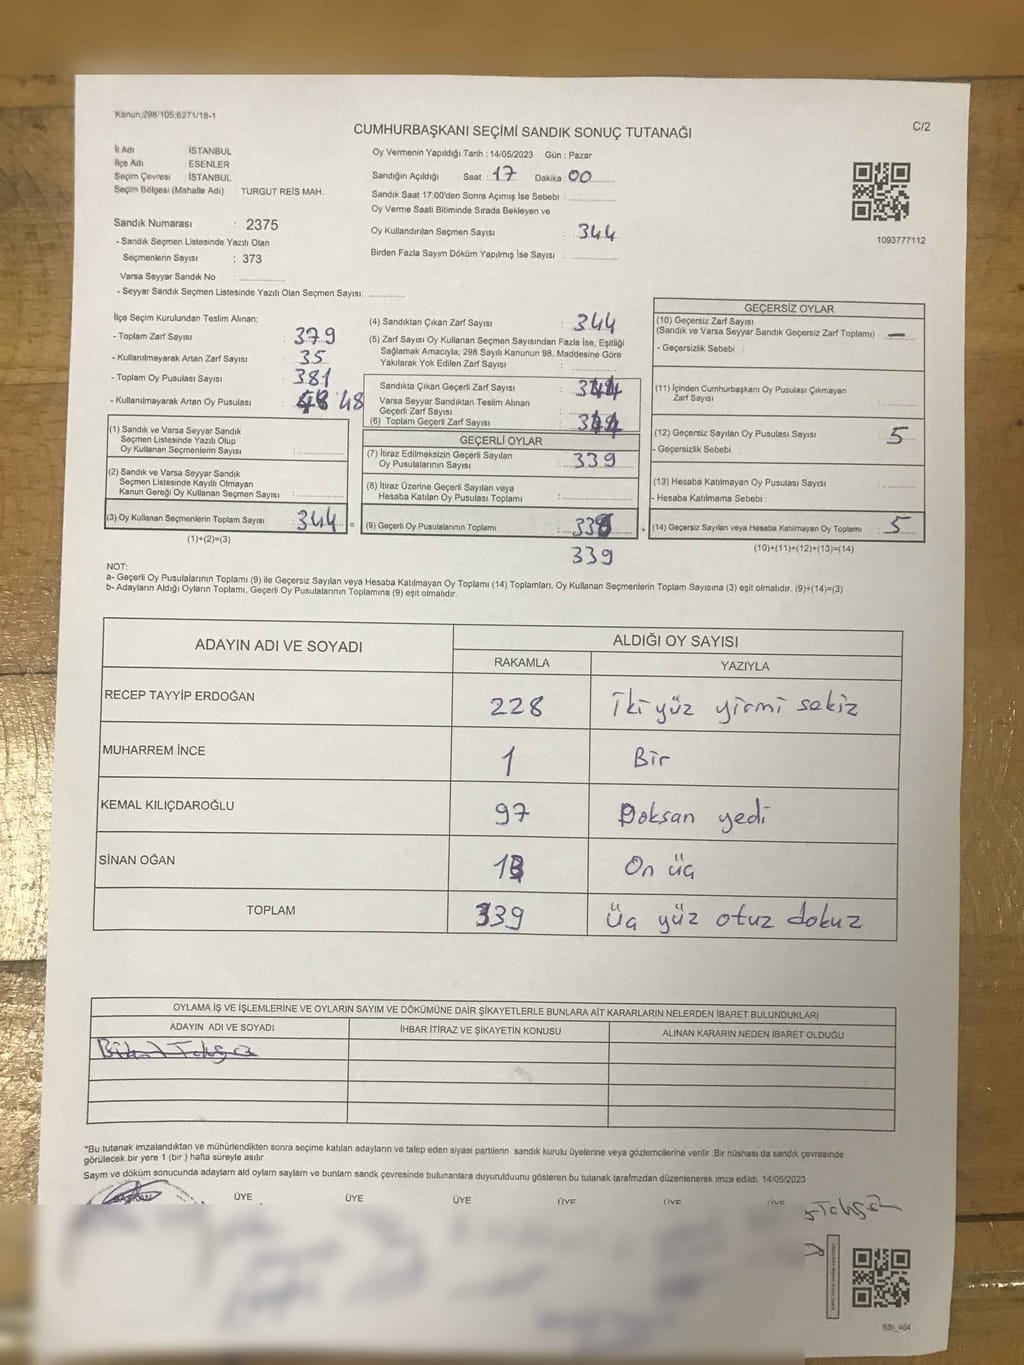 Kanun;298/105;6271/18-1
C/2
CUMHURBAŞKANI SEÇİMİ SANDIK SONUÇ TUTANAĞI
İl Adı : İSTANBUL
İlçe Adı : ESENLER
Seçim Çevresi : İSTANBUL
Seçim Bölgesi (Mahalle Adı) : TURGUT REİS MAH.
Sandık Numarası : 2375
- Sandık Seçmen Listesinde Yazılı Olan
Seçmenlerin Sayısı : 373
Varsa Seyyar Sandık No :
- Seyyar Sandık Seçmen Listesinde Yazılı Olan Seçmen Sayısı:
Oy Vermenin Yapıldığı Tarih : 14/05/2023 Gün : Pazar
Sandığın Açıldığı Saat : 17 Dakika 00
Sandık Saat 17:00'den Sonra Açımış İse Sebebi :
Oy Verme Saati Bitiminde Sırada Bekleyen ve
Oy Kullandırılan Seçmen Sayısı : 344
Birden Fazla Sayım Döküm Yapılmış İse Sayısı :
1093777112
İlçe Seçim Kurulundan Teslim Alınan;
- Toplam Zarf Sayısı : 379
- Kullanılmayarak Artan Zarf Sayısı : 35
- Toplam Oy Pusulası Sayısı : 381
- Kullanılmayarak Artan Oy Pusulası : 48
(1) Sandık ve Varsa Seyyar Sandık
Seçmen Listesinde Yazılı Olup
Oy Kullanan Seçmenlerin Sayısı :
(2) Sandık ve Varsa Seyyar Sandık
Seçmen Listesinde Kayıtlı Olmayan
Kanun Gereği Oy Kullanan Seçmen Sayısı :
(3) Oy Kullanan Seçmenlerin Toplam Sayısı : 344 =
(1)+(2)=(3)
(4) Sandıktan Çıkan Zarf Sayısı : 344
(5) Zarf Sayısı Oy Kullanan Seçmen Sayısından Fazla İse, Eşitliği
Sağlamak Amacıyla; 298 Sayılı Kanunun 98. Maddesine Göre
Yakılarak Yok Edilen Zarf Sayısı :
Sandıkta Çıkan Geçerli Zarf Sayısı : 344
Varsa Seyyar Sandıktan Teslim Alınan
Geçerli Zarf Sayısı :
(6) Toplam Geçerli Zarf Sayısı : 344
GEÇERLİ OYLAR
(7) İtiraz Edilmeksizin Geçerli Sayılan
Oy Pusulalarının Sayısı : 339
(8) İtiraz Üzerine Geçerli Sayılan veya
Hesaba Katılan Oy Pusulası Toplamı :
(9) Geçerli Oy Pusulalarının Toplamı : +
339
GEÇERSİZ OYLAR
(10) Geçersiz Zarf Sayısı
(Sandık ve Varsa Seyyar Sandık Geçersiz Zarf Toplamı) : —
- Geçersizlik Sebebi :
(11) İçinden Cumhurbaşkanı Oy Pusulası Çıkmayan
Zarf Sayısı :
(12) Geçersiz Sayılan Oy Pusulası Sayısı : 5
- Geçersizlik Sebebi :
(13) Hesaba Katılmayan Oy Pusulası Sayısı :
- Hesaba Katılmama Sebebi :
(14) Geçersiz Sayılan veya Hesaba Katılmayan Oy Toplamı : 5
(10)+(11)+(12)+(13)=(14)
NOT:
a- Geçerli Oy Pusulalarının Toplamı (9) ile Geçersiz Sayılan veya Hesaba Katılmayan Oy Toplamı (14) Toplamları, Oy Kullanan Seçmenlerin Toplam Sayısına (3) eşit olmalıdır. (9)+(14)=(3)
b- Adayların Aldığı Oyların Toplamı, Geçerli Oy Pusulalarının Toplamına (9) eşit olmalıdır.
ADAYIN ADI VE SOYADI ALDIĞI OY SAYISI
RAKAMLA YAZIYLA
RECEP TAYYİP ERDOĞAN 228 İki yüz yirmi sekiz
MUHARREM İNCE 1 Bir
KEMAL KILIÇDAROĞLU 97 Doksan yedi
SİNAN OĞAN 13 On üç
TOPLAM 339 Üç yüz otuz dokuz
OYLAMA İŞ VE İŞLEMLERİNE VE OYLARIN SAYIM VE DÖKÜMÜNE DAİR ŞİKAYETLERLE BUNLARA AİT KARARLARIN NELERDEN İBARET BULUNDUKLARI
ADAYIN ADI VE SOYADI İHBAR İTİRAZ VE ŞİKAYETİN KONUSU ALINAN KARARIN NEDEN İBARET OLDUĞU
*Bu tutanak imzalandıktan ve mühürlendikten sonra seçime katılan adayların ve talep eden siyasi partilerin sandık kurulu üyelerine veya gözlemcilerine verilir .Bir nüshası da sandık çevresinde
görülecek bir yere 1 (bir ) hafta süreyle asılır.
Sayım ve döküm sonucunda adayların ald oyların sayların ve bunların sandk çevresinde bulunanlara duyurulduunu gösteren bu tutanak tarafmzdan düzenlenerek imza edildi. 14/05/2023
BAŞKAN ÜYE ÜYE ÜYE ÜYE ÜYE ÜYE
SSI_404